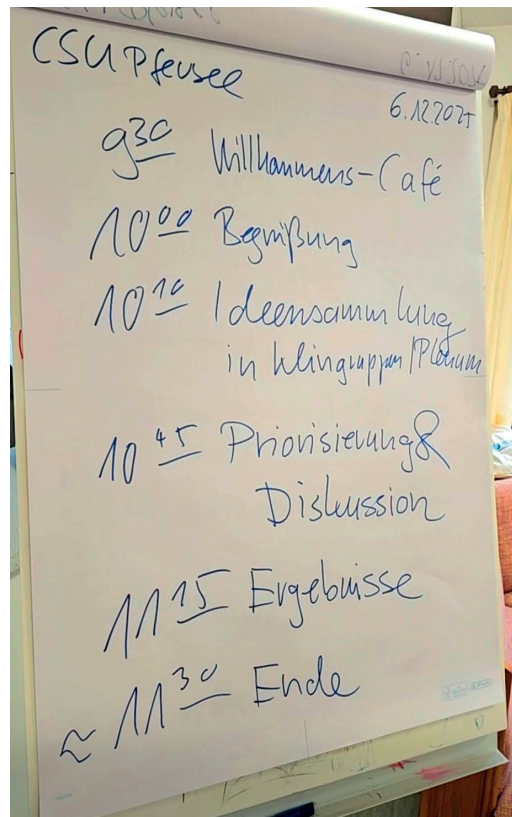 CSU Pfersee
6.12.2025
9 30 Willkommens-Café
10 00 Begrüßung
10 10 Ideensammlung
in Kleingruppen/Plenum
10 45 Priorisierung &
Diskussion
11 15 Ergebnisse
≈ 11 30 Ende